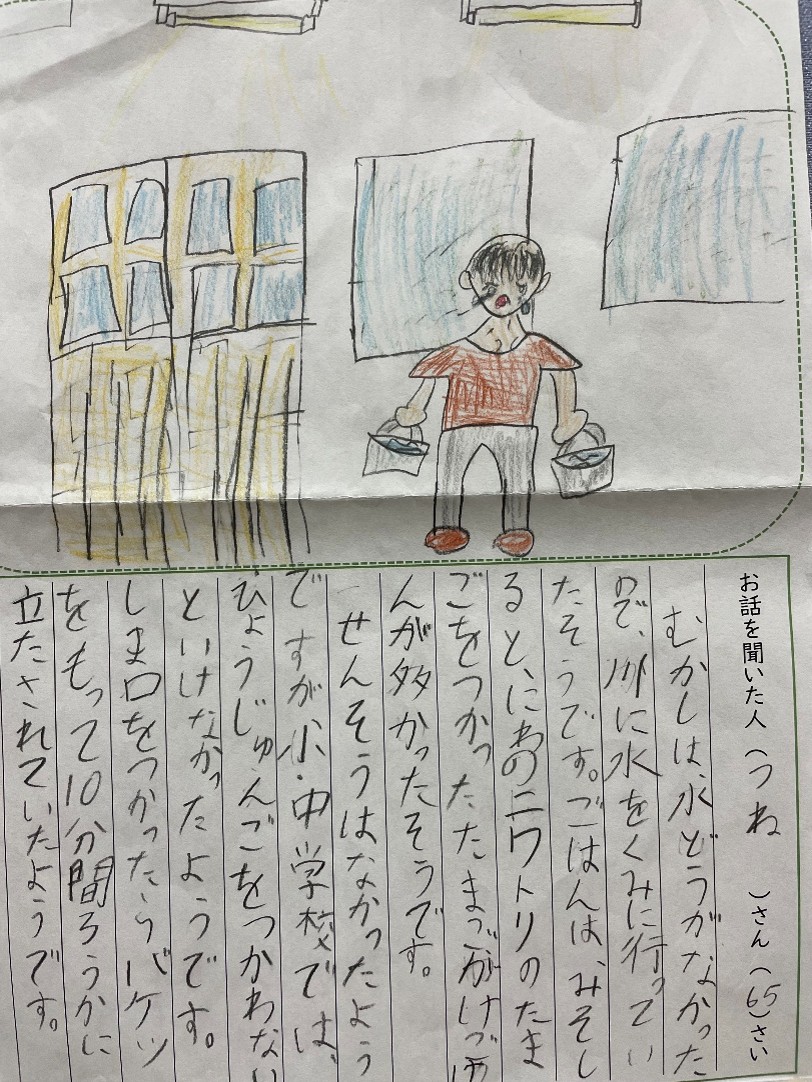 お話を聞いた人（つね　）さん（65）さい
むかしは、水どうがなかった
ので、川に水をくみに行ってい
たそうです。ごはんは、みそし
ると、にわのニワトリのたま
ごをつかったたまごかけごは
んが多かったそうです。
せんそうはなかったよう
ですが小・中学校では、
ひょうじゅんごをつかわない
といけなかったようです。
しま口をつかったらバケツ
をもって10分間ろうかに
立たされていたようです。